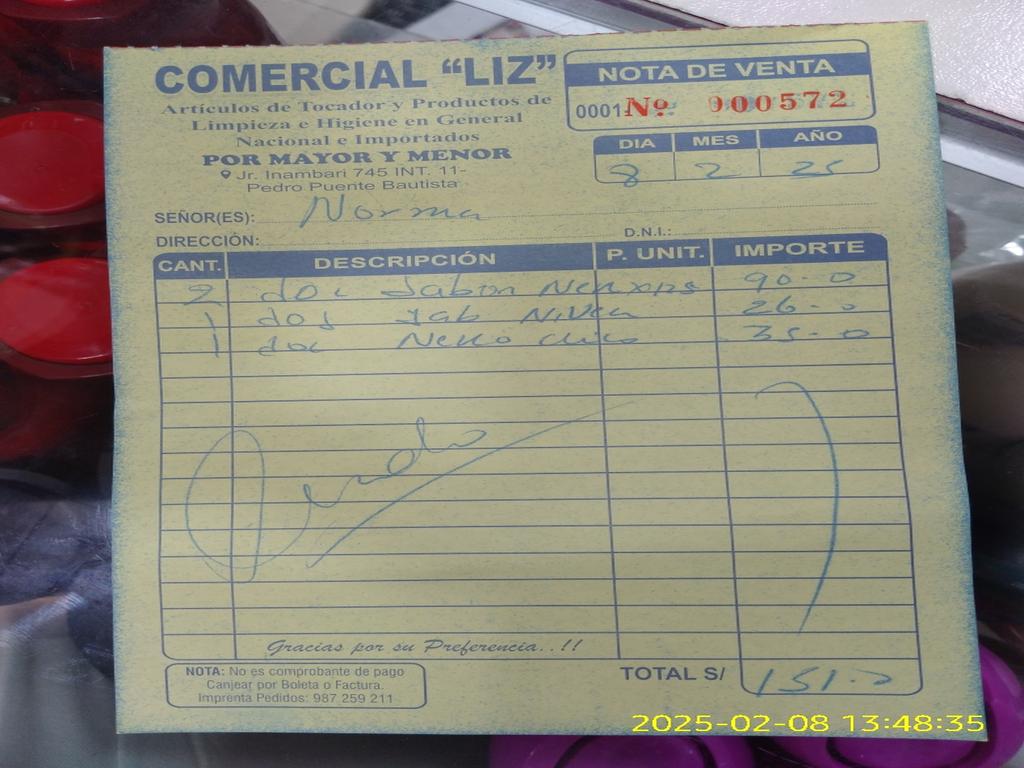 COMERCIAL “LIZ”
Artículos de Tocador y Productos de
Limpieza e Higiene en General
Nacional e Importados
POR MAYOR Y MENOR
Jr. Inambari 745 INT. 11-
Pedro Puente Bautista
NOTA DE VENTA
0001 Nº 000572
DIA MES AÑO
8 2 25
SEÑOR(ES): Norma
DIRECCIÓN: D.N.I.:
CANT. DESCRIPCIÓN P. UNIT. IMPORTE
2 doc Jabon 90-0
1 doc Jab Nivea 26-0
1 doc chico 35-0
Gracias por su Preferencia..!!
NOTA: No es comprobante de pago
Canjear por Boleta o Factura.
Imprenta Pedidos: 987 259 211
TOTAL S/ 151-0
2025-02-08 13:48:35